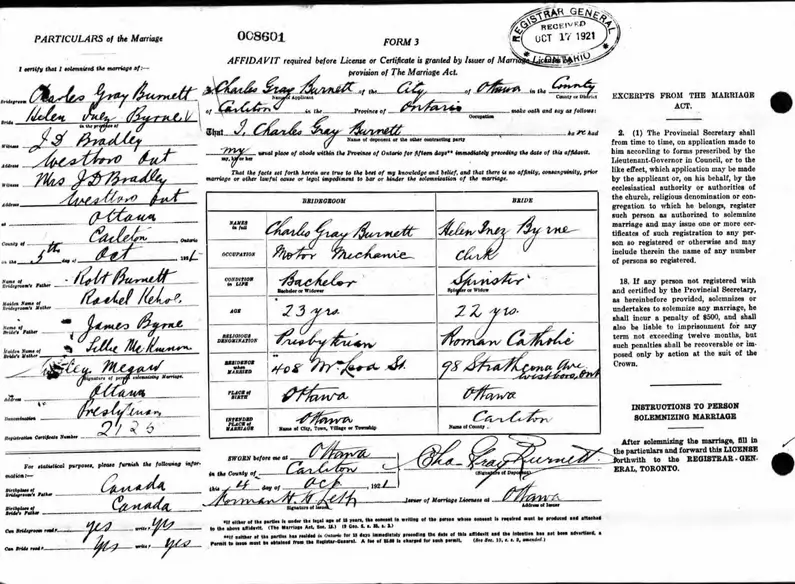 PARTICULARS of the Marriage
I certify that I solemnized the marriage of:—
Bridegroom Charles Gray Burnett
Bride Helen Inez Byrne
in the presence of
Witness J D Bradley
Address Westboro Ont
Witness Mrs J D Bradley
Address Westboro Ont
at Ottawa
County of Carleton Ontario
on the 5th day of Oct 1921
Name of Bridegroom's Father Robt Burnett
Maiden Name of Bridegroom's Mother Rachel
Name of Bride's Father James Byrne
Maiden Name of Bride's Mother Lillie McKinnon
Megaw
Signature of person solemnizing Marriage.
Address Ottawa
Denomination Presbyterian
Registration Certificate Number 2126
For statistical purposes, please furnish the following information:—
Birthplace of Bridegroom's Father Canada
Birthplace of Bride's Father Canada
Can Bridegroom read? yes write? yes
Can Bride read? yes write? yes
008601
FORM 3
REGISTRAR GENERAL
RECEIVED
OCT 17 1921
ONTARIO
AFFIDAVIT required before License or Certificate is granted by Issuer of Marriage Licenses
provision of The Marriage Act.
I, Charles Gray Burnett of the City of Ottawa in the County
Name of Applicant County or District
of Carleton in the Province of Ontario make oath and say as follows:
Occupation
That I, Charles Gray Burnett have had
Name of deponent or the other contracting party
my usual place of abode within the Province of Ontario for fifteen days** immediately preceding the date of this affidavit.
my, his or her
That the facts set forth herein are true to the best of my knowledge and belief, and that there is no affinity, consanguinity, prior
marriage or other lawful cause or legal impediment to bar or hinder the solemnization of the marriage.
BRIDEGROOM BRIDE
NAMES in full Charles Gray Burnett Helen Inez Byrne
OCCUPATION Motor Mechanic Clerk
CONDITION in LIFE Bachelor Spinster
Bachelor or Widower Spinster or Widow
AGE 23 yrs. 22 yrs.
RELIGIOUS DENOMINATION Presbyterian Roman Catholic
RESIDENCE when MARRIED 408 McLeod St. 98 Strathcona Ave. Westboro, Ont
PLACE of BIRTH Ottawa Ottawa
INTENDED PLACE of MARRIAGE Ottawa Carleton
Name of City, Town, Village or Township Name of County
SWORN before me at Ottawa
in the County of Carleton
this 4 day of Oct, 1921
Chas Gray Burnett
(Signature of Deponent)
Norman H.
Signature of Issuer
Issuer of Marriage Licenses at Ottawa
Address of Issuer
*If either of the parties is under the legal age of 18 years, the consent in writing of the person whose consent is required must be produced and attached
to the above affidavit. (The Marriage Act, Sec. 15.)
**If neither of the parties has resided in Ontario for 15 days immediately preceding the date of this affidavit and the intention has not been advertised, a
Permit to issue must be obtained from the Registrar-General. A fee of is charged for such permit.
EXCERPTS FROM THE MARRIAGE
ACT.
2. (1) The Provincial Secretary shall
from time to time, on application made to
him according to forms prescribed by the
Lieutenant-Governor in Council, or to the
like effect, which application may be made
by the applicant or, on his behalf, by the
ecclesiastical authority or authorities of
the church, religious denomination or con-
gregation to which he belongs, register
such person as authorized to solemnize
marriage and may issue one or more cer-
tificates of such registration to any per-
son so registered or otherwise and may
include therein the name of any number
of persons so registered.
18. If any person not registered with
and certified by the Provincial Secretary,
as hereinbefore provided, solemnizes or
undertakes to solemnize any marriage, he
shall incur a penalty of $500, and shall
also be liable to imprisonment for any
term not exceeding twelve months, but
such penalties shall be recoverable or im-
posed only by action at the suit of the
Crown.
INSTRUCTIONS TO PERSON
SOLEMNIZING MARRIAGE
After solemnizing the marriage, fill in
the particulars and forward this LICENSE
forthwith to the REGISTRAR-GEN-
ERAL, TORONTO.